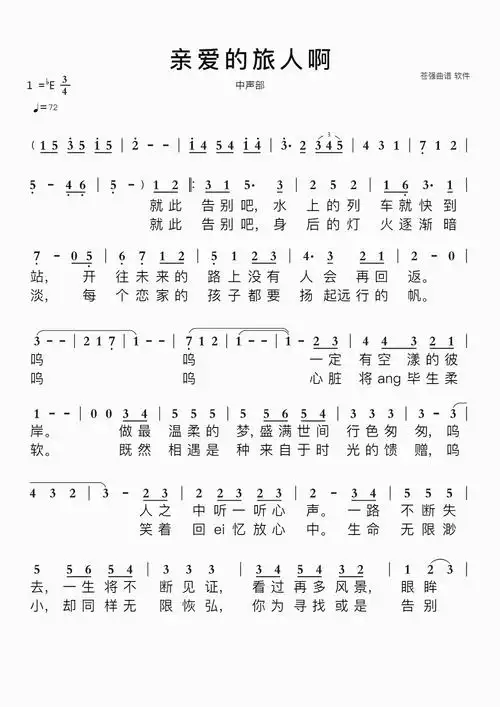 亲爱的旅人啊
中声部
苍强曲谱 软件
1 =♭E 3/4
♩=72
(1 5 3 5 1 5 | 2 - - | 1 4 5 4 1 4 | 3· 2 3 4 5 | 4 3 1 | 7 1 2 |
5 - 4 6 | 5 - ) 1 2 |: 3 1 5· 3 | 2 5 2 | 1 6 3· 1 |
就此 告别吧, 水 上的列 车就快到
就此 告别吧, 身 后的灯 火逐渐暗
7 - 0 5 | 6 7 1 2 | 5 1 2 1 2 | 4· 3 | 2 1 2 | 2 - 0 |
站, 开 往未来的 路上没有 人会 再回 返。
淡, 每 个恋家的 孩子都要 扬起远行的 帆。
3 - - | 2 1 7 | 7 1 2 | 1 - - | 1 - 2 3 | 4 4 3 2 1 |
呜 呜 一定 有空 漾的彼
呜 呜 心脏 将ang毕生柔
1 - - | 0 0 3 4 | 5 5 5 4 | 5 5 6 5 4 | 3 2 3 4 | 3 - 3 |
岸。 做最 温柔的 梦,盛满世间 行色匆 匆, 呜
软。 既然 相遇是 种 来自于时 光的馈 赠, 呜
4 3 2 | 3 - 2 3 | 2 3 2 3 2 3 | 3 - 2 3 | 5 5 5 |
人之 中听一听心 声。一路 不断失
笑着 回ei忆放心 中。生命 无限渺
5 5 6 5 4 | 3 3 3 | 3 - 3 4 | 3 4 3 4 3 4 | 3 1 2 3 |
去, 一生将不 断见证, 看过 再多风景, 眼眸
小, 却同样无 限恢弘, 你为 寻找或是 告别